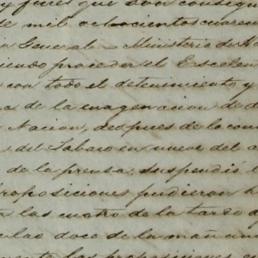 y fines que son consigu
de mil ochocientos cuaren
n General Ministerio de Ha
iendo proceder el Escelen
con todo el detenimiento y
a de la enagenacion de
Nacion, despues de la con
del Tabaco en nueve del a
de la prensa, suspendió l
roposiciones pudieran h
las cuatro de la tarde d
las doce de la mañana
las proposiciones